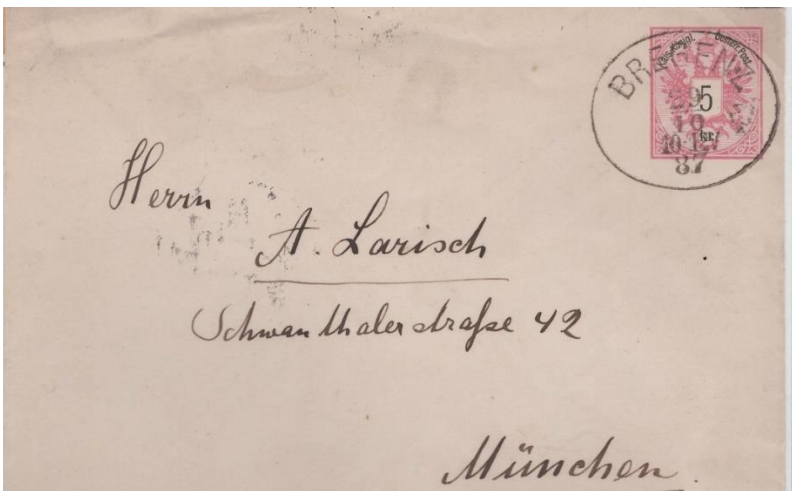 BREGENZ
Kais. Königl. Oesterr. Post
5
KR.
10
87
Herrn
A. Larisch
Schwanthalerstraße 42
München